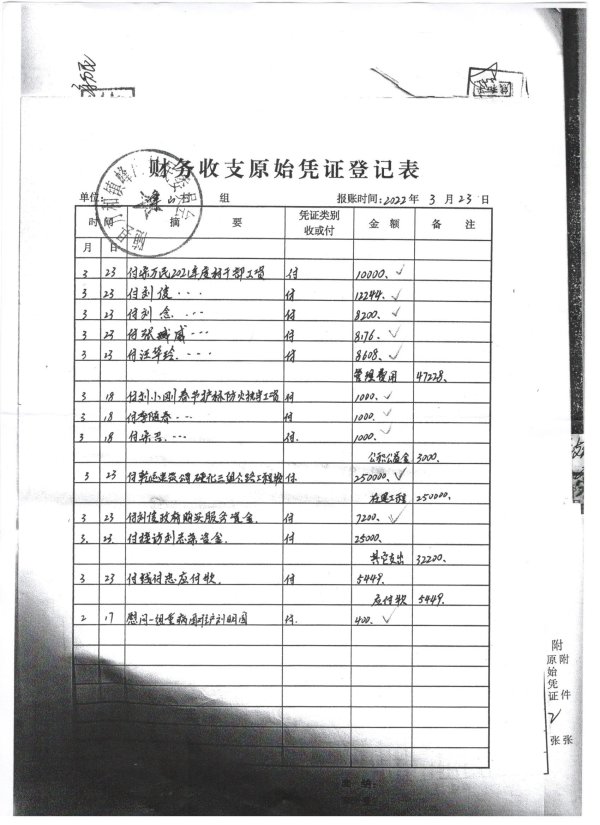 财务收支原始凭证登记表
单位: 组 报账时间:2022年 3 月 23 日
时间 摘要 凭证类别 收或付 金额 备注
月 日
3 23 付 万民2021年度村干部工资 付 10000、
3 23 付刘俊 〃 〃 〃 付 12244、
3 23 付刘念 〃 〃 〃 付 8200、
3 23 付张 威 〃 〃 〃 付 8176、
3 23 付汪华玲 〃 〃 〃 付 8608、
管理费用 47228、
3 18 付刘小刚春节护林防火 工资 付 1000、
3 18 付李随春 〃 付 1000、
3 18 付 〃 〃 〃 付 1000、
公积公益金 3000、
3 23 付乾 硬化三组公路工程款 付 250000、
在建工程 250000、
3 23 付刘俊政府购买服务资金、 付 7200、
3 23 付接访刘志 资金、 付 25000、
其它支出 32200、
3 23 付钱付忠应付款、 付 5449、
应付款 5449、
2 17 慰问一组重病 刘明国 付 400、
附件 张
附原始凭证 2 张